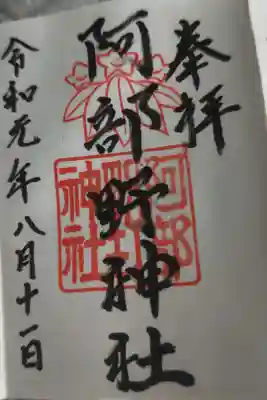 奉拝
阿部野神社
令和元年八月十一日
阿部
野
神社